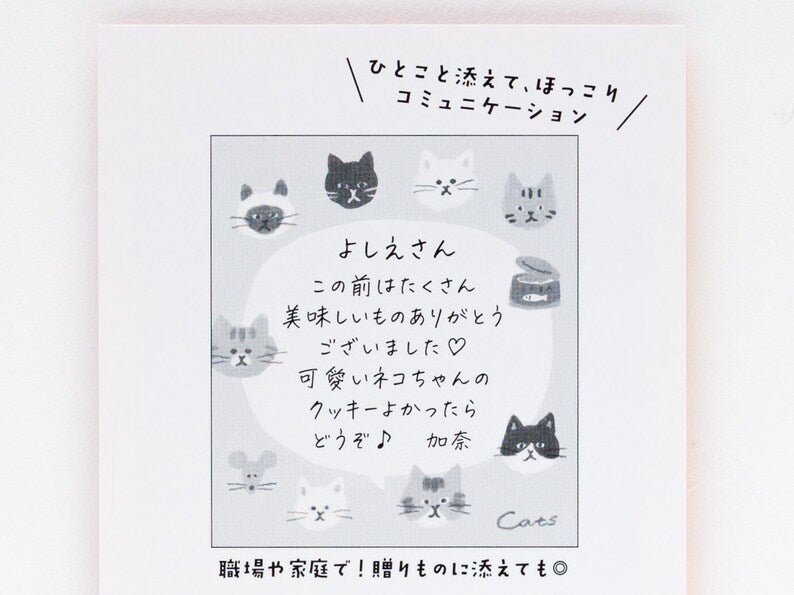 ひとこと添えて、ほっこり
コミュニケーション
よしえさん
この前はたくさん
美味しいものありがとう
ございました♡
可愛いネコちゃんの
クッキーよかったら
どうぞ♪ 加奈
Cats
職場や家庭で！贈りものに添えても◎